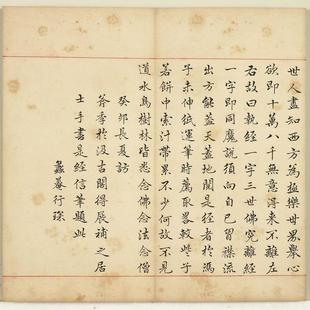 世人盡知西方為極樂世界舉心
欲即十萬八千無意得來不離左
右故曰執經一字三世佛冤離經
一字即同魔說須向自己胷襟流
出方能蓋天蓋地閒是徑者於馮
子未伸紙運筆時薦取畧較些子
若餅中索汁帶累不少何故不見
道水鳥樹林皆悉念佛念法念僧
癸卯長夏訪
斧季於汲古閣得晨補之居
士手書是經信筆題此
蠡菴行琛